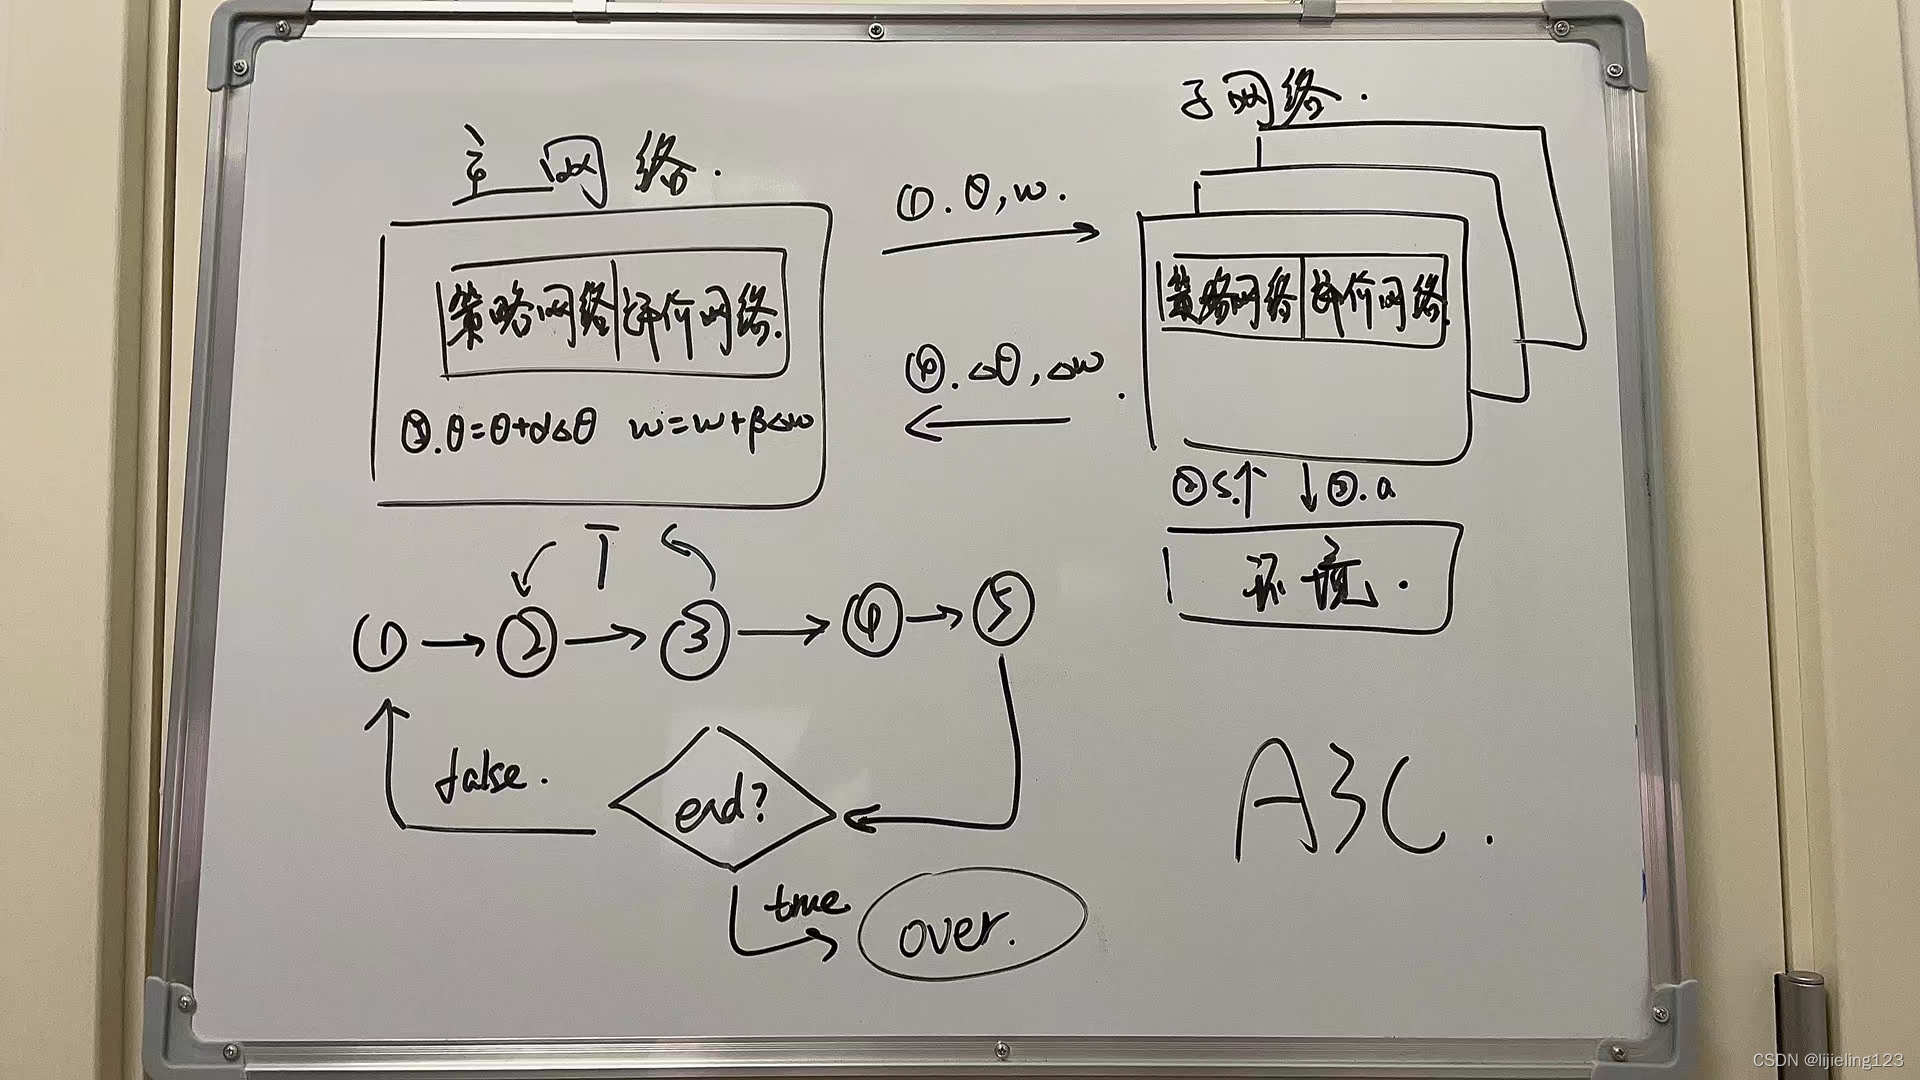 主网络.
策略网络 评价网络.
⑤.θ=θ+α△θ w=w+β△w
①.θ,w.
④.△θ,△w.
子网络.
策略网络 评价网络.
②s.↑ ↓③.a
环境.
T
①→②→③→④→⑤
false.
end?
true
over.
A3C.
CSDN @lijieling123